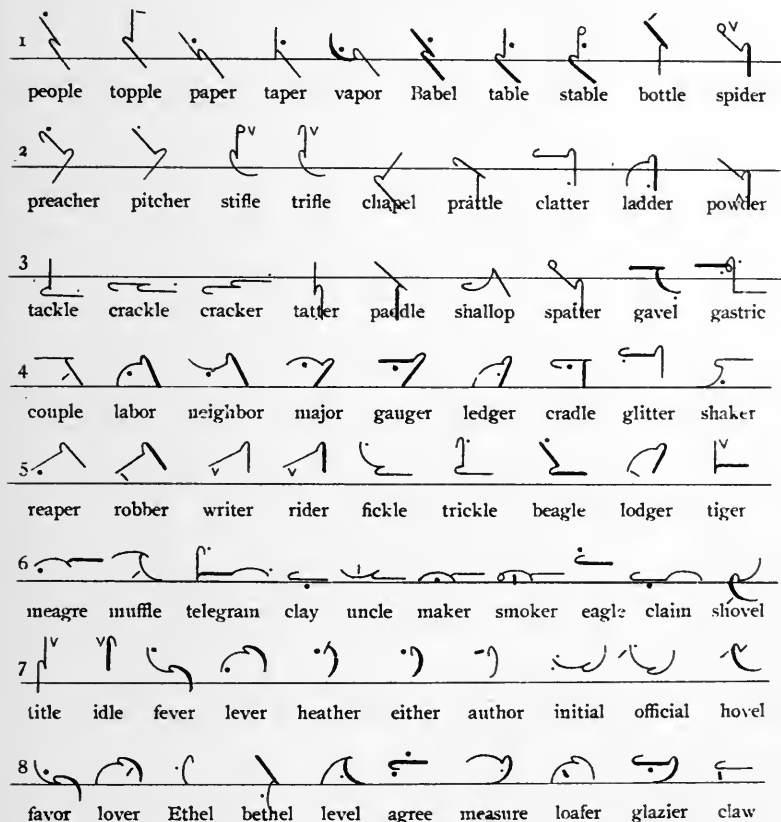 1
people topple paper taper vapor Babel table stable bottle spider
2
preacher pitcher stifle trifle chapel prattle clatter ladder powder
3
tackle crackle cracker tatter paddle shallop spatter gavel gastric
4
couple labor neighbor major gauger ledger cradle glitter shaker
5
reaper robber writer rider fickle trickle beagle lodger tiger
6
meagre muffle telegram clay uncle maker smoker eagle claim shovel
7
title idle fever lever heather either author initial official hovel
8
favor lover Ethel bethel level agree measure loafer glazier claw